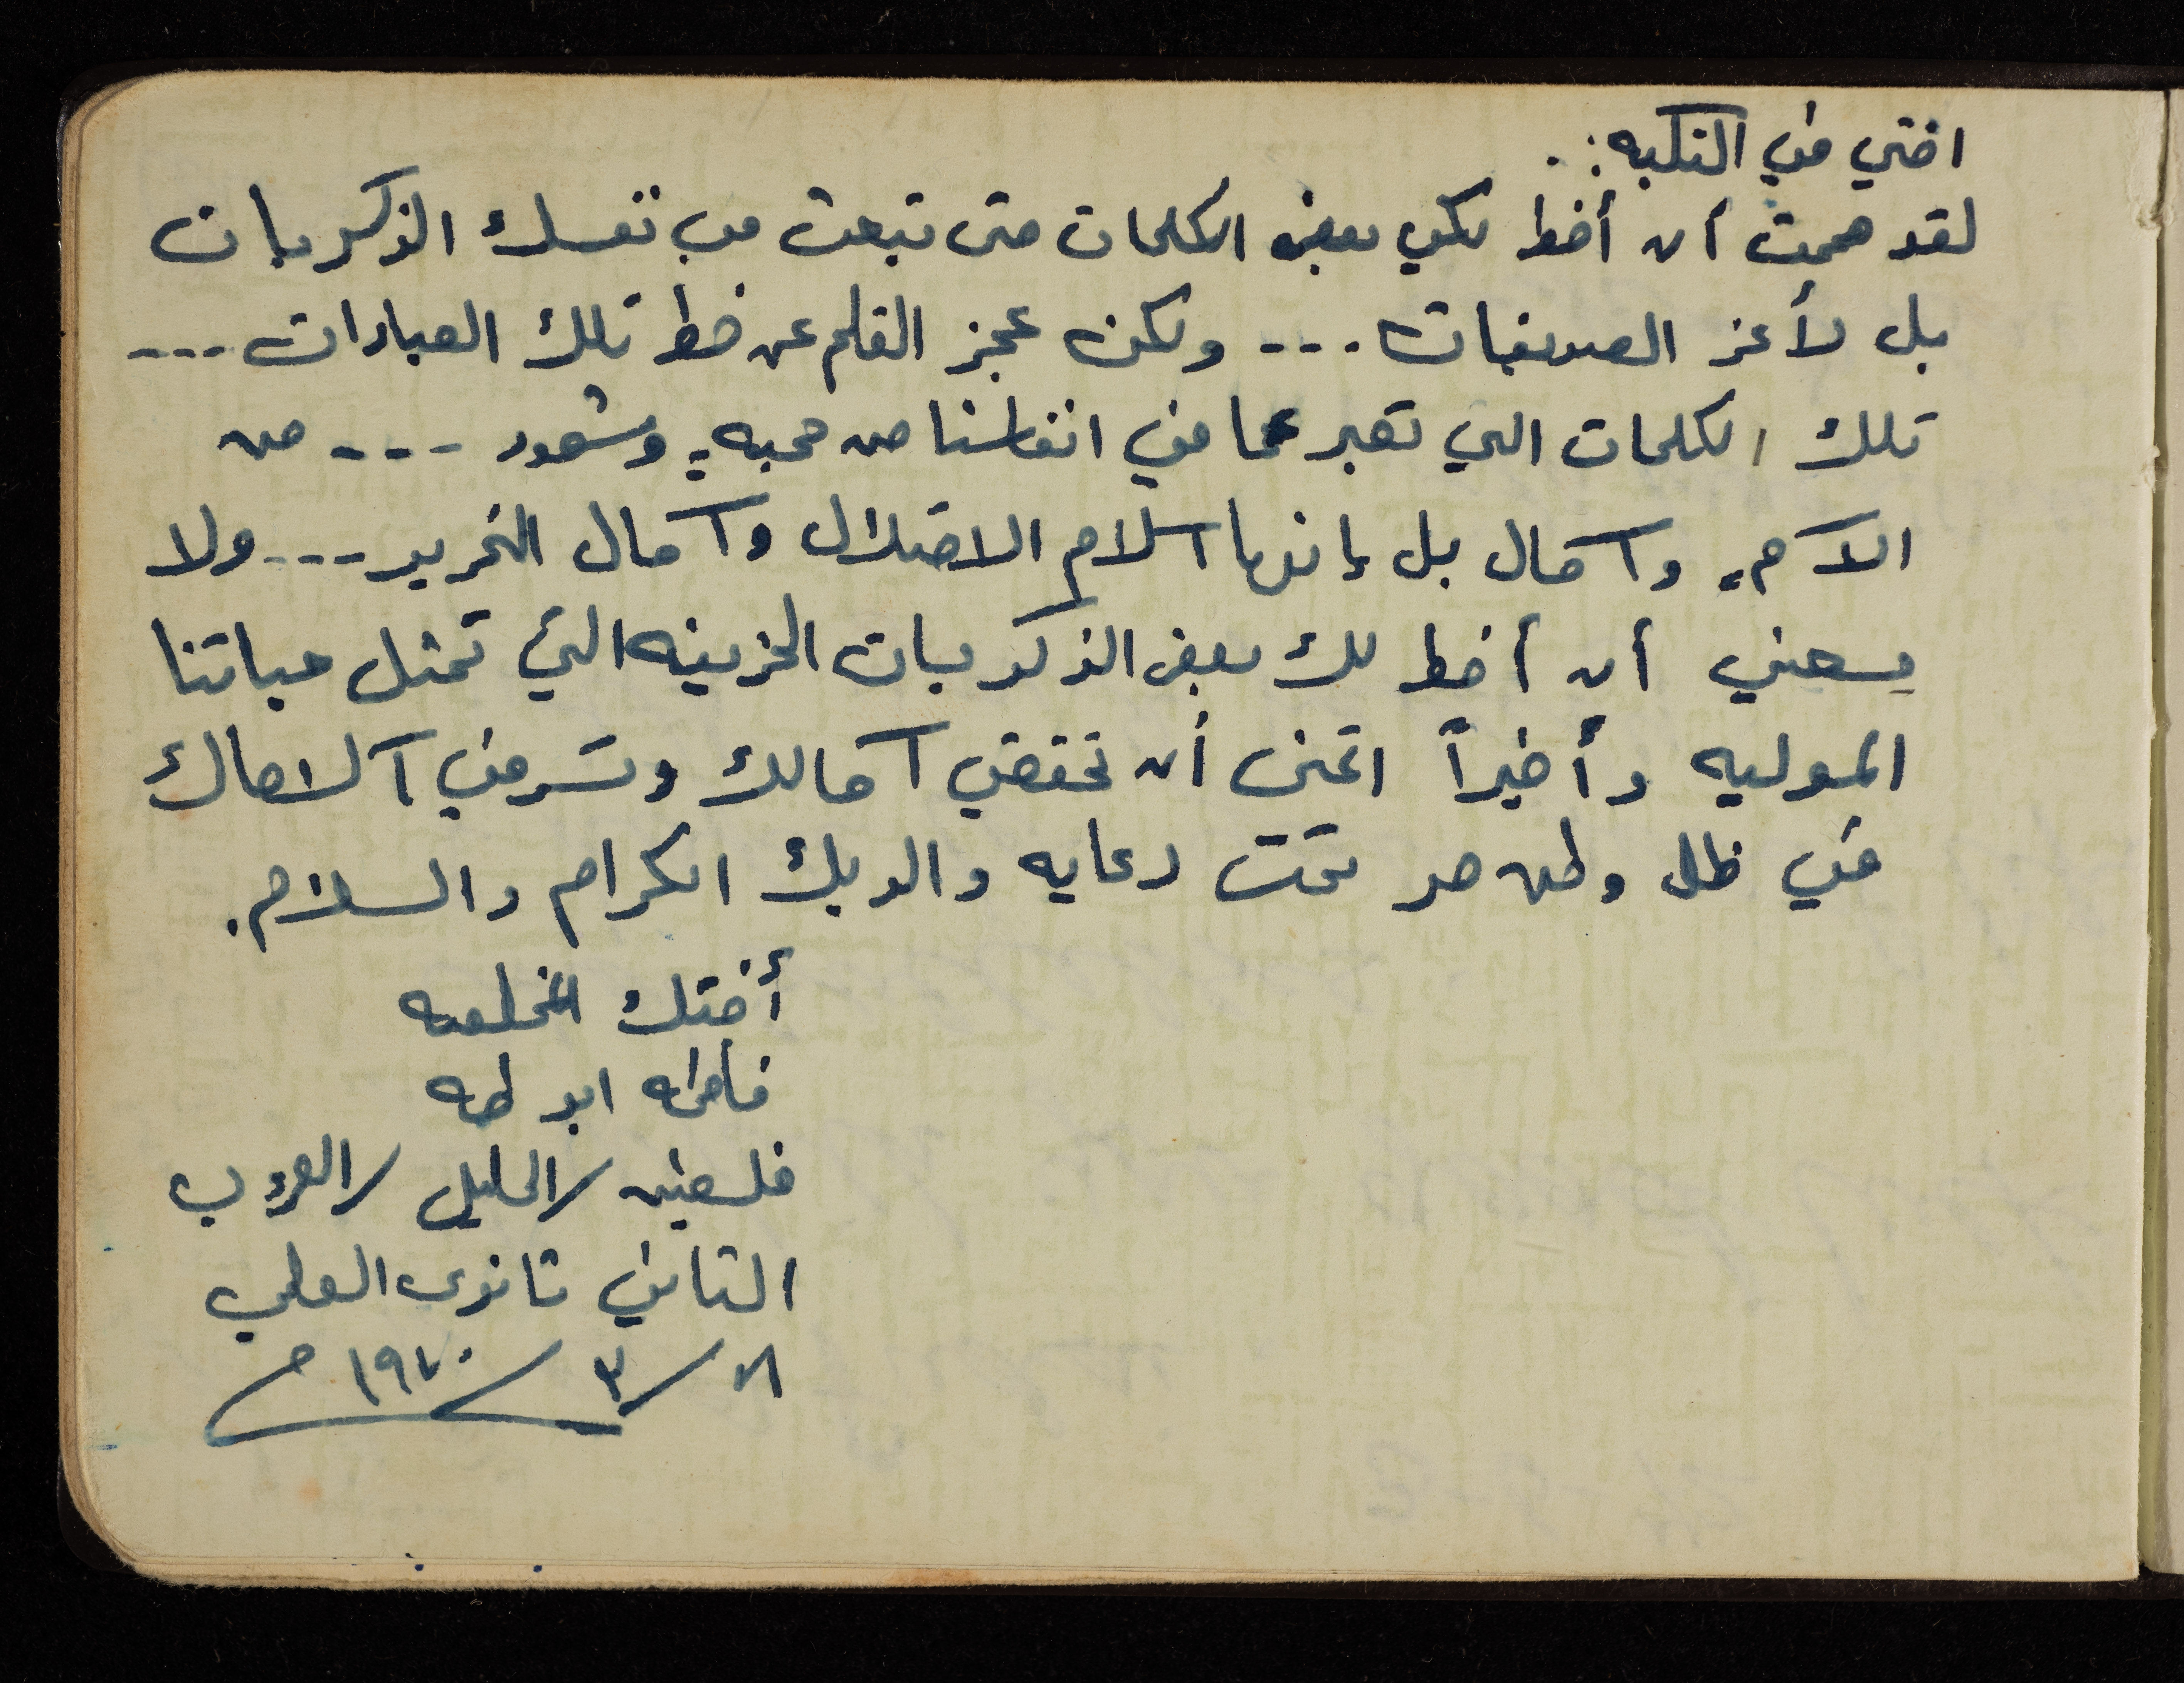 اختي في النكبه :.
لقد هممت أن أخط لكي بعض الكلمات حتى تبعث في نفسك الذكريات
بل لأعز الصديقات --- ولكن عجز القلم عن خط تلك العبارات ---
تلك الكلمات التي تعبر عما في انفاسنا من محبهٍ وشعور --- من
الآم وآمال بل إنها اسلام الاحتلال وآمال التحرير --- ولا
يسعني أن أخط لك بعض الذكريات الحزينه التي تمثل حياتنا
وأخيراً اتمنى أن تحققي آمالك وترفي
في ظل وطن حر تحت رعايه والديك الكرام والسلام.
أختك المخلصه
فاطمه ابو لحمه
فلسطين / الخليل / العروب
الثاني ثانوي العلمي
٣ / ١٩٧٠ م